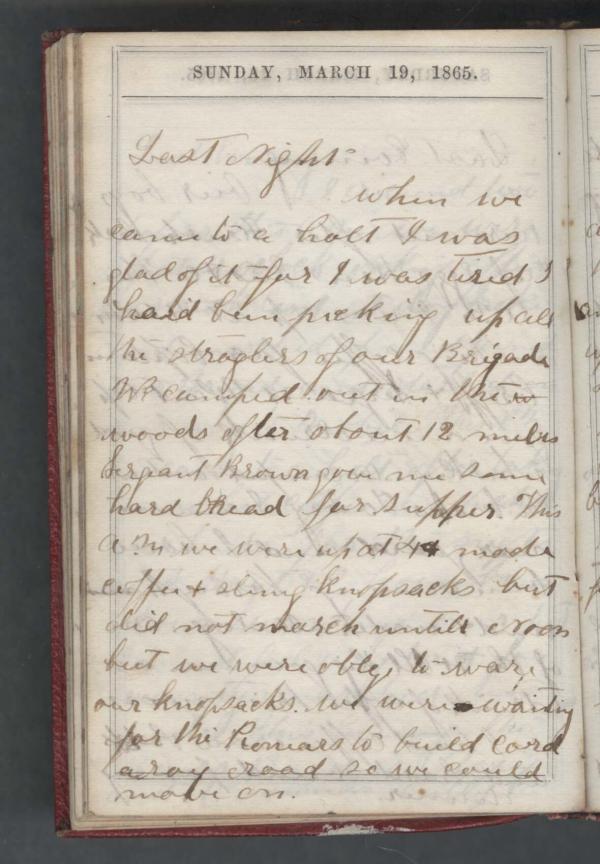 SUNDAY, MARCH 19, 1865.
Last Night
when we
came to a halt I was
glad of it for I was tired I
haid bun picking up all
the straglers of our Brigade
We camped out in the
woods after about 12 miles
Sergeant Brown gave me some
hard bread for supper. This
a m we were up at 4 made
coffee & slung knapsacks but
did not march untill Noon
but we were oblg to ware
our knapsacks. we were waiting
for the Pioneers to build cord
aroy droad so we could
move on.